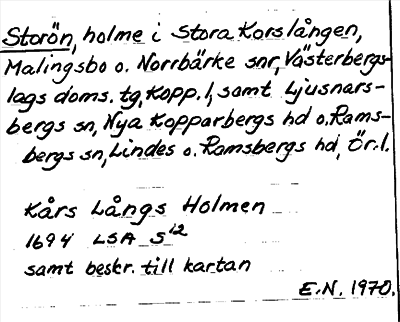 Storön, holme i Stora Korslången,
Malingsbo o. Norrbärke snr, Västerbergs-
lags doms. tg, Kopp. l, samt Ljusnars-
bergs sn, Nya Kopparbergs hd o. Rams-
bergs sn, Lindes o. Ramsbergs hd, Ör. l.
Kårs Långs Holmen
1694 LSA S12
samt beskr. till kartan
E.N. 1970.